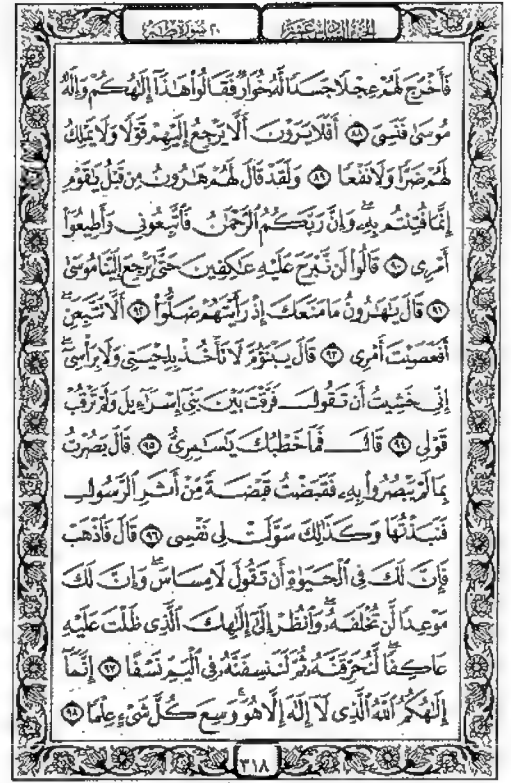 الجزء السادس عشر ٢٠ سورة طه
فَأَخْرَجَ لَهُمْ عِجْلًا جَسَدًا لَّهُ خُوَارٌ فَقَالُوا۟ هَٰذَآ إِلَٰهُكُمْ وَإِلَٰهُ
مُوسَىٰ فَنَسِىَ ٨٨ أَفَلَا يَرَوْنَ أَلَّا يَرْجِعُ إِلَيْهِمْ قَوْلًا وَلَا يَمْلِكُ
لَهُمْ ضَرًّا وَلَا نَفْعًا ٨٩ وَلَقَدْ قَالَ لَهُمْ هَٰرُونُ مِن قَبْلُ يَٰقَوْمِ
إِنَّمَا فُتِنتُم بِهِۦ وَإِنَّ رَبَّكُمُ ٱلرَّحْمَٰنُ فَٱتَّبِعُونِى وَأَطِيعُوٓا۟
أَمْرِى ٩٠ قَالُوا۟ لَن نَّبْرَحَ عَلَيْهِ عَٰكِفِينَ حَتَّىٰ يَرْجِعَ إِلَيْنَا مُوسَىٰ
٩١ قَالَ يَٰهَٰرُونُ مَا مَنَعَكَ إِذْ رَأَيْتَهُمْ ضَلُّوٓا۟ ٩٢ أَلَّا تَتَّبِعَنِ
أَفَعَصَيْتَ أَمْرِى ٩٣ قَالَ يَبْنَؤُمَّ لَا تَأْخُذْ بِلِحْيَتِى وَلَا بِرَأْسِىٓ
إِنِّى خَشِيتُ أَن تَقُولَ فَرَّقْتَ بَيْنَ بَنِىٓ إِسْرَٰٓءِيلَ وَلَمْ تَرْقُبْ
قَوْلِى ٩٤ قَالَ فَمَا خَطْبُكَ يَٰسَٰمِرِىُّ ٩٥ قَالَ بَصُرْتُ
بِمَا لَمْ يَبْصُرُوا۟ بِهِۦ فَقَبَضْتُ قَبْضَةً مِّنْ أَثَرِ ٱلرَّسُولِ
فَنَبَذْتُهَا وَكَذَٰلِكَ سَوَّلَتْ لِى نَفْسِى ٩٦ قَالَ فَٱذْهَبْ
فَإِنَّ لَكَ فِى ٱلْحَيَوٰةِ أَن تَقُولَ لَا مِسَاسَ وَإِنَّ لَكَ
مَوْعِدًا لَّن تُخْلَفَهُۥ وَٱنظُرْ إِلَىٰٓ إِلَٰهِكَ ٱلَّذِى ظَلْتَ عَلَيْهِ
عَاكِفًا لَّنُحَرِّقَنَّهُۥ ثُمَّ لَنَنسِفَنَّهُۥ فِى ٱلْيَمِّ نَسْفًا ٩٧ إِنَّمَآ
إِلَٰهُكُمُ ٱللَّهُ ٱلَّذِى لَآ إِلَٰهَ إِلَّا هُوَ وَسِعَ كُلَّ شَىْءٍ عِلْمًا ٩٨
٣١٨